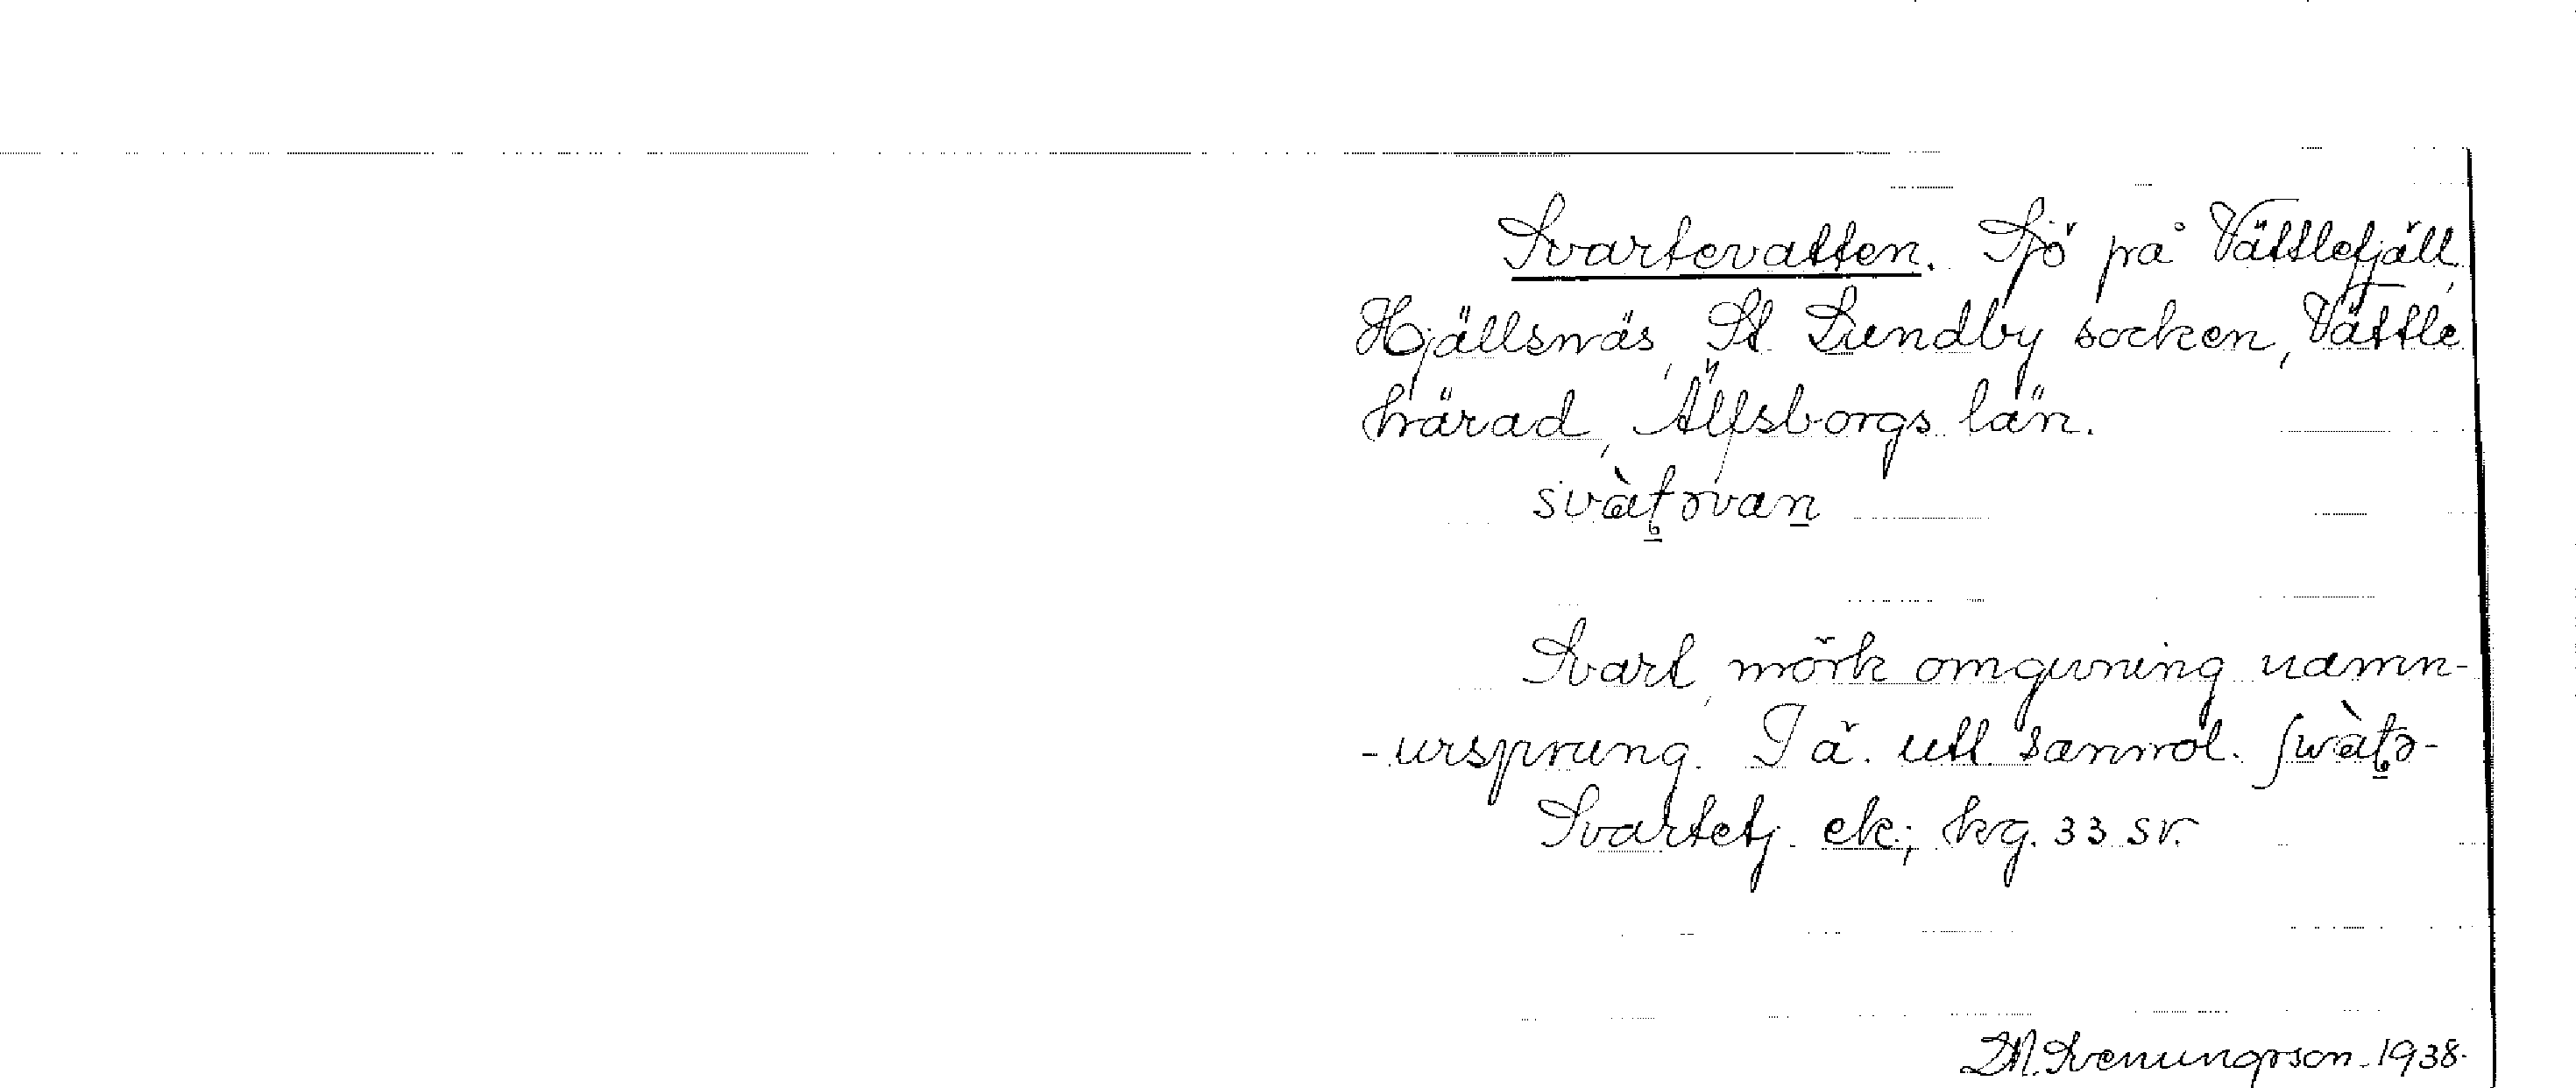 Svartevatten. Sjö på Vättlefjäll,
Hjällsnäs, St. Lundby socken, Vättle
härad, Älfsborgs län.
svàtəvan
Svart, mörk omgivning namn-
-ursprung. I ä. utt. sannol.
Svartetj. ek.; kg. 33 sv.
Svenungsson. 1938.